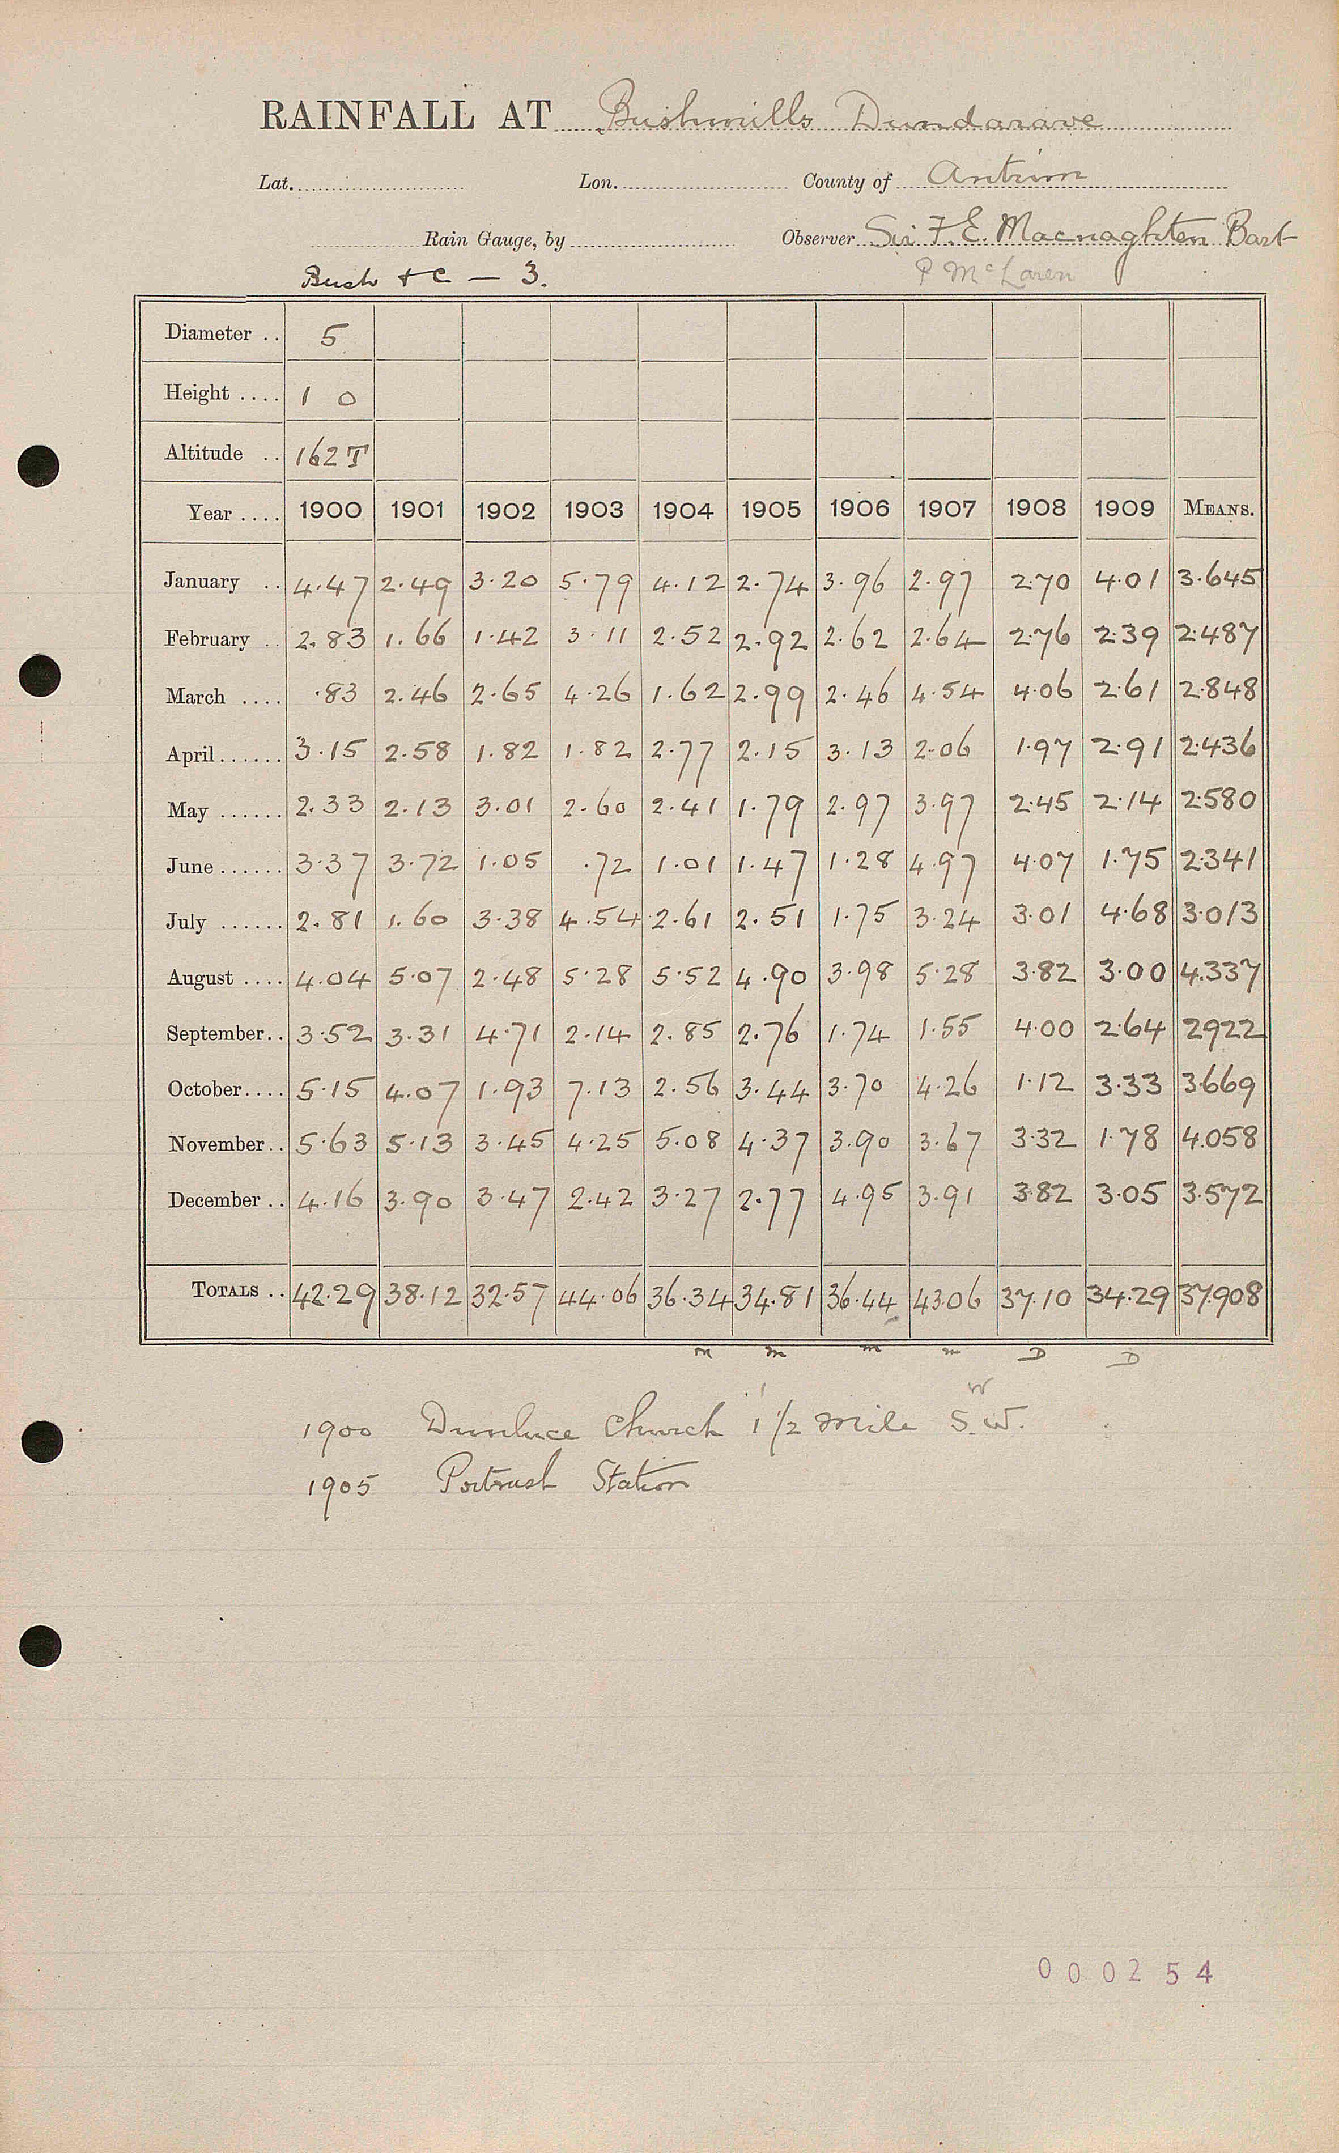 RAINFALL AT Bushmills Dundarave
Lat. Lon. County of Antrim
Rain Gauge, by Observer Sir F. E. Macnaghten Bart
Bush & C — 3. P McLaren
Diameter .. 5
Height .... 1 0
Altitude .. 162 T
Year .... 1900 1901 1902 1903 1904 1905 1906 1907 1908 1909 MEANS.
January .. 4.47 2.49 3.20 5.79 4.12 2.74 3.96 2.97 2.70 4.01 3.645
February .. 2.83 1.66 1.42 3.11 2.52 2.92 2.62 2.64 2.76 2.39 2.487
March .... .83 2.46 2.65 4.26 1.62 2.99 2.46 4.54 4.06 2.61 2.848
April ...... 3.15 2.58 1.82 1.82 2.77 2.15 3.13 2.06 1.97 2.91 2.436
May ...... 2.33 2.13 3.01 2.60 2.41 1.79 2.97 3.97 2.45 2.14 2.580
June ...... 3.37 3.72 1.05 .72 1.01 1.47 1.28 4.97 4.07 1.75 2.341
July ...... 2.81 1.60 3.38 4.54 2.61 2.51 1.75 3.24 3.01 4.68 3.013
August .... 4.04 5.07 2.48 5.28 5.52 4.90 3.98 5.28 3.82 3.00 4.337
September .. 3.52 3.31 4.71 2.14 2.85 2.76 1.74 1.55 4.00 2.64 2922
October .... 5.15 4.07 1.93 7.13 2.56 3.44 3.70 4.26 1.12 3.33 3.669
November .. 5.63 5.13 3.45 4.25 5.08 4.37 3.90 3.67 3.32 1.78 4.058
December .. 4.16 3.90 3.47 2.42 3.27 2.77 4.95 3.91 3.82 3.05 3.572
TOTALS .. 42.29 38.12 32.57 44.06 36.34 34.81 36.44 43.06 37.10 34.29 37.908
m m m m D D
W
1900 Dunluce Church 1 1/2 mile S.W.
1905 Portrush Station
000254